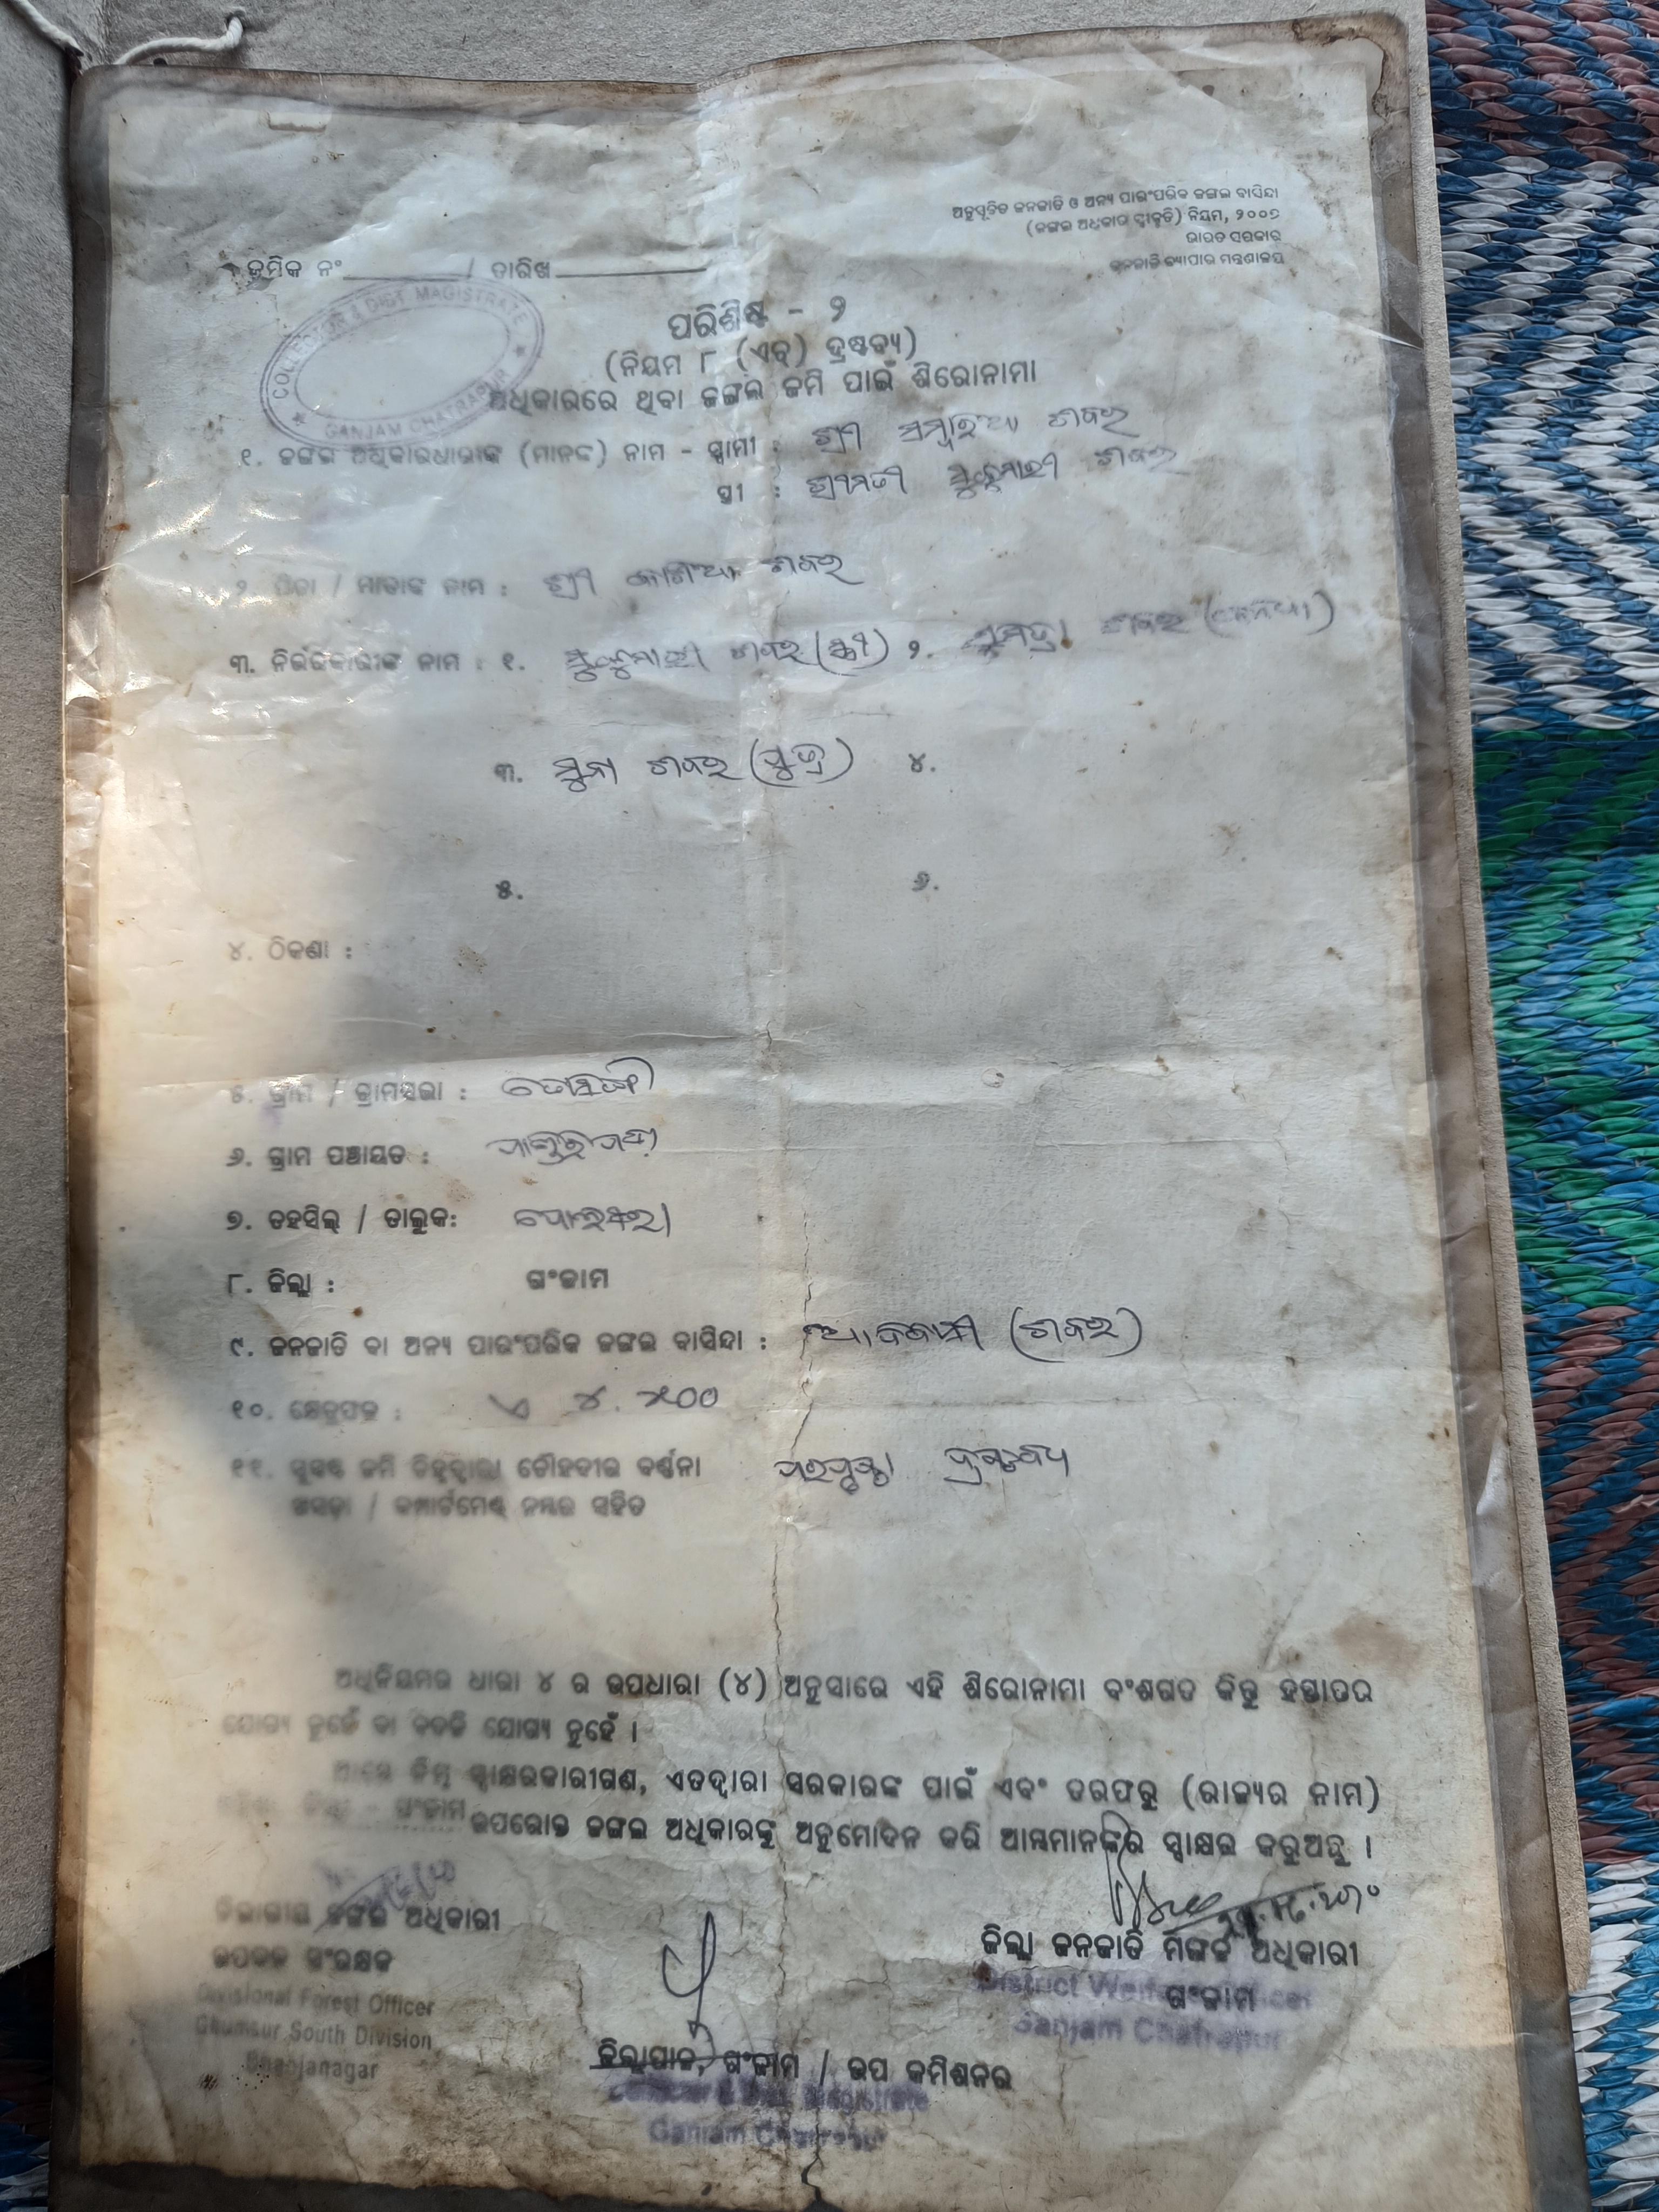 ଅନୁସୂଚିତ ଜନଜାତି ଓ ଅନ୍ୟ ପାରଂପରିକ ଜଙ୍ଗଲ ବାସିନ୍ଦା
(ଜଙ୍ଗଲ ଅଧିକାର ସ୍ୱୀକୃତି) ନିୟମ, ୨୦୦୭
ଭାରତ ସରକାର
ଜନଜାତି ବ୍ୟାପାର ମନ୍ତ୍ରଣାଳୟ
କ୍ରମିକ ନଂ / ତାରିଖ
COLLECTOR & DIST. MAGISTRATE
GANJAM CHATRAPUR
ପରିଶିଷ୍ଟ - ୨
(ନିୟମ ୮ (ଏଚ୍) ଦ୍ରଷ୍ଟବ୍ୟ)
ଅଧିକାରରେ ଥିବା ଜଙ୍ଗଲ ଜମି ପାଇଁ ଶିରୋନାମା
୧. ଜଙ୍ଗଲ ଅଧିକାରଧାରୀଙ୍କ (ମାନଙ୍କ) ନାମ - ସ୍ୱାମୀ : ଶ୍ରୀ ଶବର
ସ୍ତ୍ରୀ : ଶ୍ରୀମତୀ ଶବର
୨. ପିତା / ମାତାଙ୍କ ନାମ : ଶ୍ରୀ ଶବର
୩. ନିର୍ଭରକାରୀଙ୍କ ନାମ : ୧. ଶବର (ସ୍ତ୍ରୀ) ୨. ଶବର
୩. ଶବର (ପୁତ୍ର) ୪.
୫. ୬.
୪. ଠିକଣା :
୫. ଗ୍ରାମ / ଗ୍ରାମସଭା :
୬. ଗ୍ରାମ ପଞ୍ଚାୟତ :
୭. ତହସିଲ୍ / ତାଲୁକ: ପୋଲସରା
୮. ଜିଲ୍ଲା : ଗଂଜାମ
୯. ଜନଜାତି ବା ଅନ୍ୟ ପାରଂପରିକ ଜଙ୍ଗଲ ବାସିନ୍ଦା : ଆଦିବାସୀ (ଶବର)
୧୦. କ୍ଷେତ୍ରଫଳ : ଏ ୪.୫୦୦
୧୧. ସୁସ୍ପଷ୍ଟ ଜମି ଚିହ୍ନଦ୍ୱାରା ଚୌହଦୀର ବର୍ଣ୍ଣନା ପରପୃଷ୍ଠା ଦ୍ରଷ୍ଟବ୍ୟ
ଖସଡ଼ା / କମ୍ପାର୍ଟମେଣ୍ଟ ନମ୍ବର ସହିତ
ଅଧିନିୟମର ଧାରା ୪ ର ଉପଧାରା (୪) ଅନୁସାରେ ଏହି ଶିରୋନାମା ବଂଶଗତ କିନ୍ତୁ ହସ୍ତାନ୍ତର
ଯୋଗ୍ୟ ନୁହେଁ ବା ବଦଳି ଯୋଗ୍ୟ ନୁହେଁ ।
ଆମ୍ଭେ ନିମ୍ନ ସ୍ୱାକ୍ଷରକାରୀଗଣ, ଏତଦ୍ୱାରା ସରକାରଙ୍କ ପାଇଁ ଏବଂ ତରଫରୁ (ରାଜ୍ୟର ନାମ)
ଓଡ଼ିଶା ଜିଲ୍ଲା - ଗଂଜାମ ଉପରୋକ୍ତ ଜଙ୍ଗଲ ଅଧିକାରଙ୍କୁ ଅନୁମୋଦନ କରି ଆମ୍ଭମାନଙ୍କର ସ୍ୱାକ୍ଷର କରୁଅଛୁ ।
ବିଭାଗୀୟ ଜଙ୍ଗଲ ଅଧିକାରୀ
ଉପବନ ସଂରକ୍ଷକ
Divisional Forest Officer
Ghumsur South Division
Bhanjanagar
ଜିଲ୍ଲାପାଳ, ଗଂଜାମ / ଉପ କମିଶନର
Collector & Dist. Magistrate
Ganjam Chatrapur
ଜିଲ୍ଲା ଜନଜାତି ମଙ୍ଗଳ ଅଧିକାରୀ
ଗଂଜାମ
District Welfare Officer
Ganjam Chatrapur